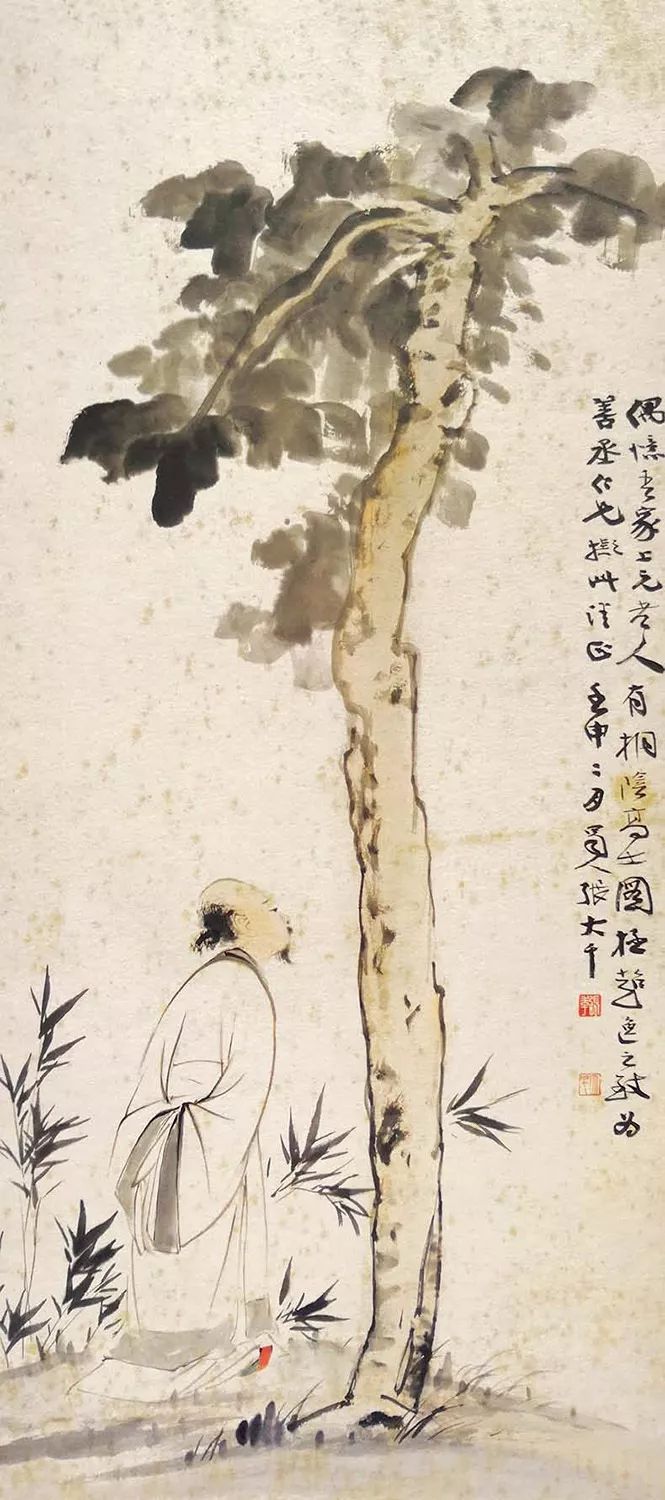 偶憶吾家上元老人有桐陰高士圖極超逸之致為
善丞仁兄擬此請正壬申二月蜀人張大千